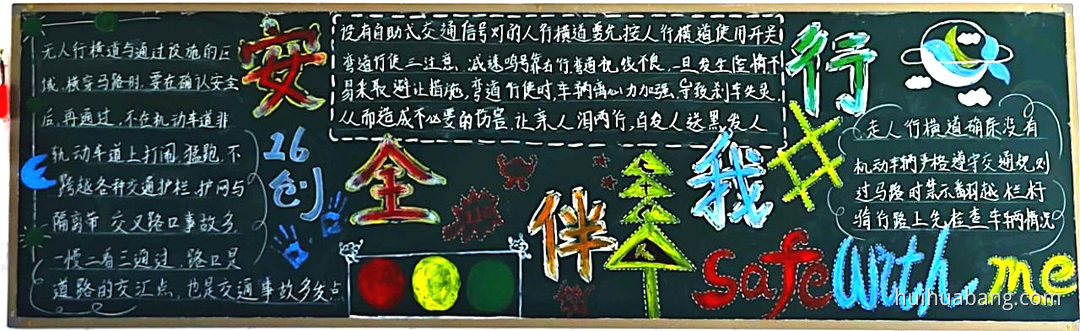 无人行横道与通过设施的区
域,横穿马路时,要在确认安全
后,再通过,不在机动车道非
机动车道上打闹,猛跑,不
跨越各种交通护栏,护网与
隔离带 交叉路口事故多,
一慢二看三通过,路口是
道路的交汇点,也是交通事故多发点
安
全
伴
我
行
16
创
设有自助式交通信号灯的人行横道要先按人行横道使用开关
弯道行使三注意,减速鸣号靠右行,普通视线不良,一旦发生险情不
易采取避让措施,弯道行使时,车辆离心力加强,导致刹车失灵
从而造成不必要的伤害,让亲人泪两行,白发人送黑发人
走人行横道确保没有
机动车辆严格遵守交通规则
过马路时禁示翻越栏杆
骑行路上先检查车辆情况
safe with me
huihuabang.com